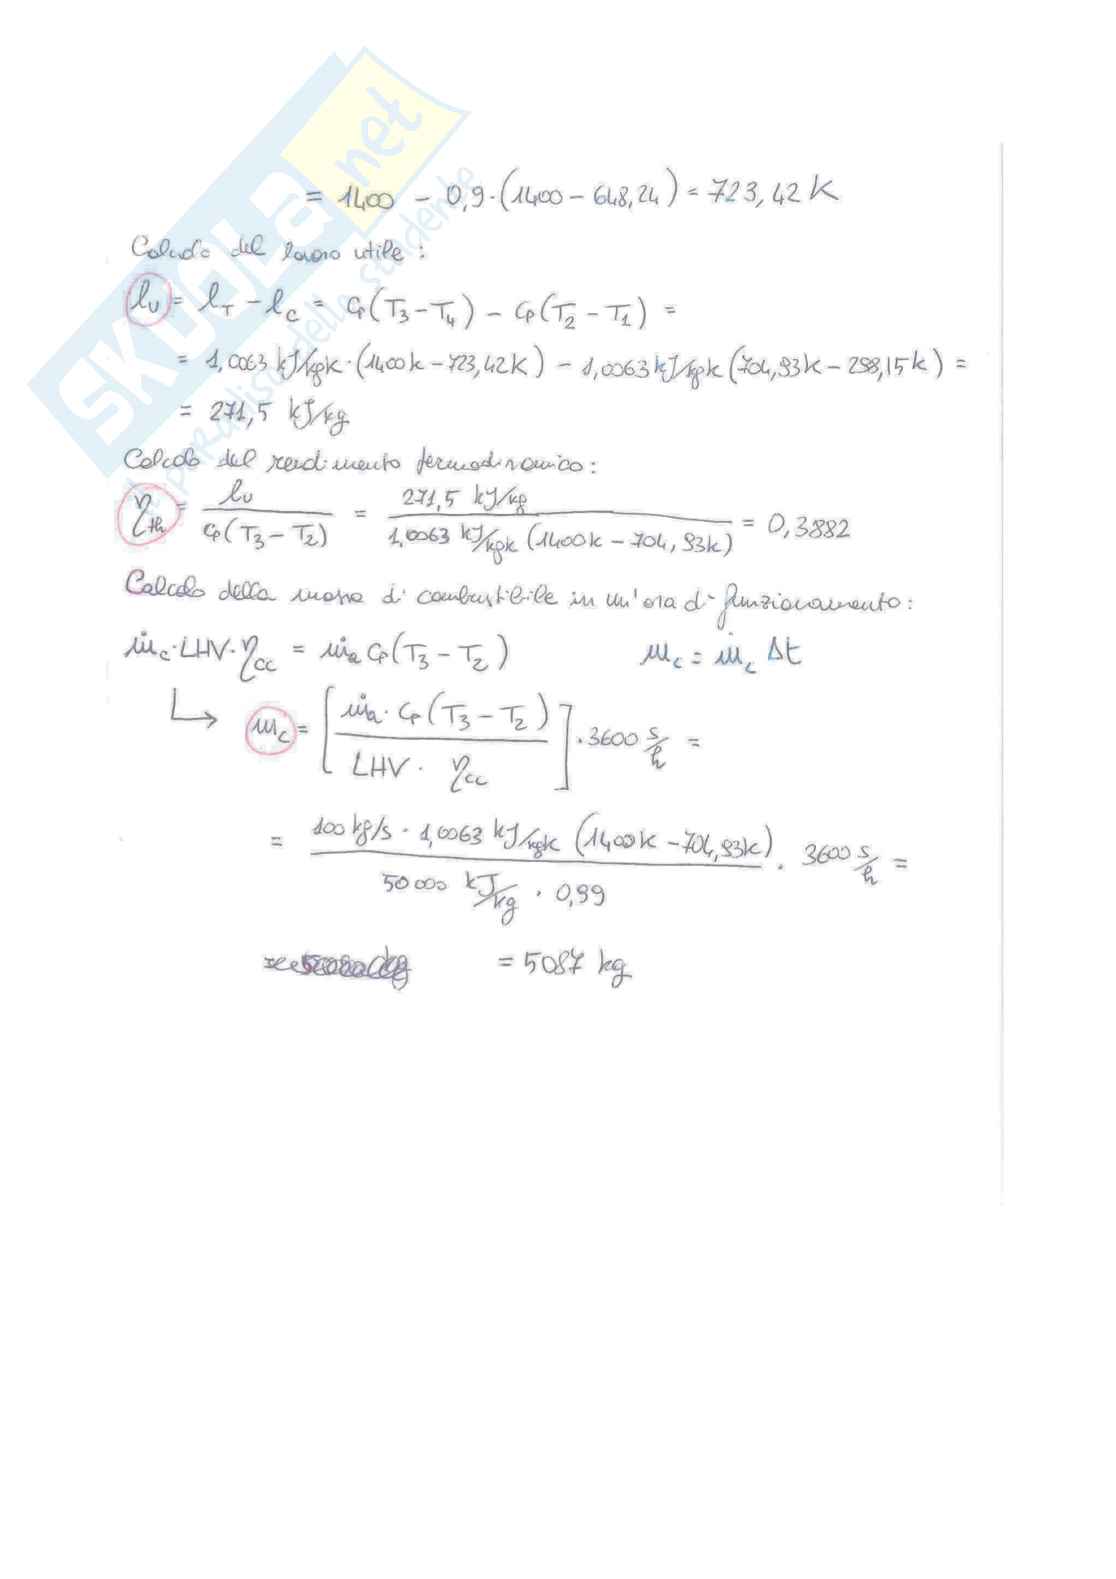 SKUOLA.net
il paradiso dello studente
= 1400 - 0,9·(1400 - 648,24) = 723,42 K
Calcolo del lavoro utile:
lU = lT - lC = Cp(T3 - T4) - Cp(T2 - T1) =
= 1,0063 kJ/kgK·(1400K - 723,42K) - 1,0063 kJ/kgK (704,93K - 298,15K) =
= 271,5 kJ/kg
Calcolo del rendimento termodinamico:
ηth = lU / Cp(T3 - T2) = 271,5 kJ/kg / 1,0063 kJ/kgK (1400K - 704,93K) = 0,3882
Calcolo della massa di combustibile in un'ora di funzionamento:
ṁc·LHV·ηcc = ṁa Cp(T3 - T2) mc = ṁc Δt
↳ mc = [ṁa·Cp(T3 - T2) / LHV·ηcc]·3600 s/h =
= 100 kg/s · 1,0063 kJ/kgK (1400K - 704,93K) / 50000 kJ/kg · 0,99 · 3600 s/h =
= 5087 kg